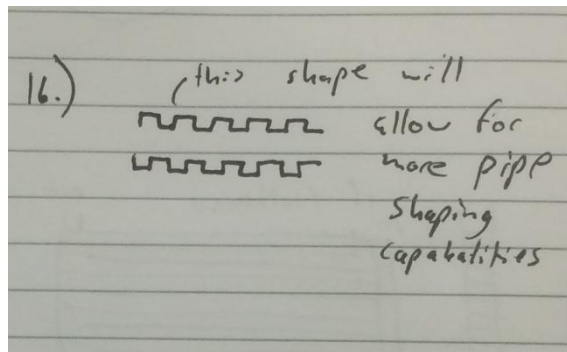 16.) this shape will
allow for
more pipe
shaping
capabatities